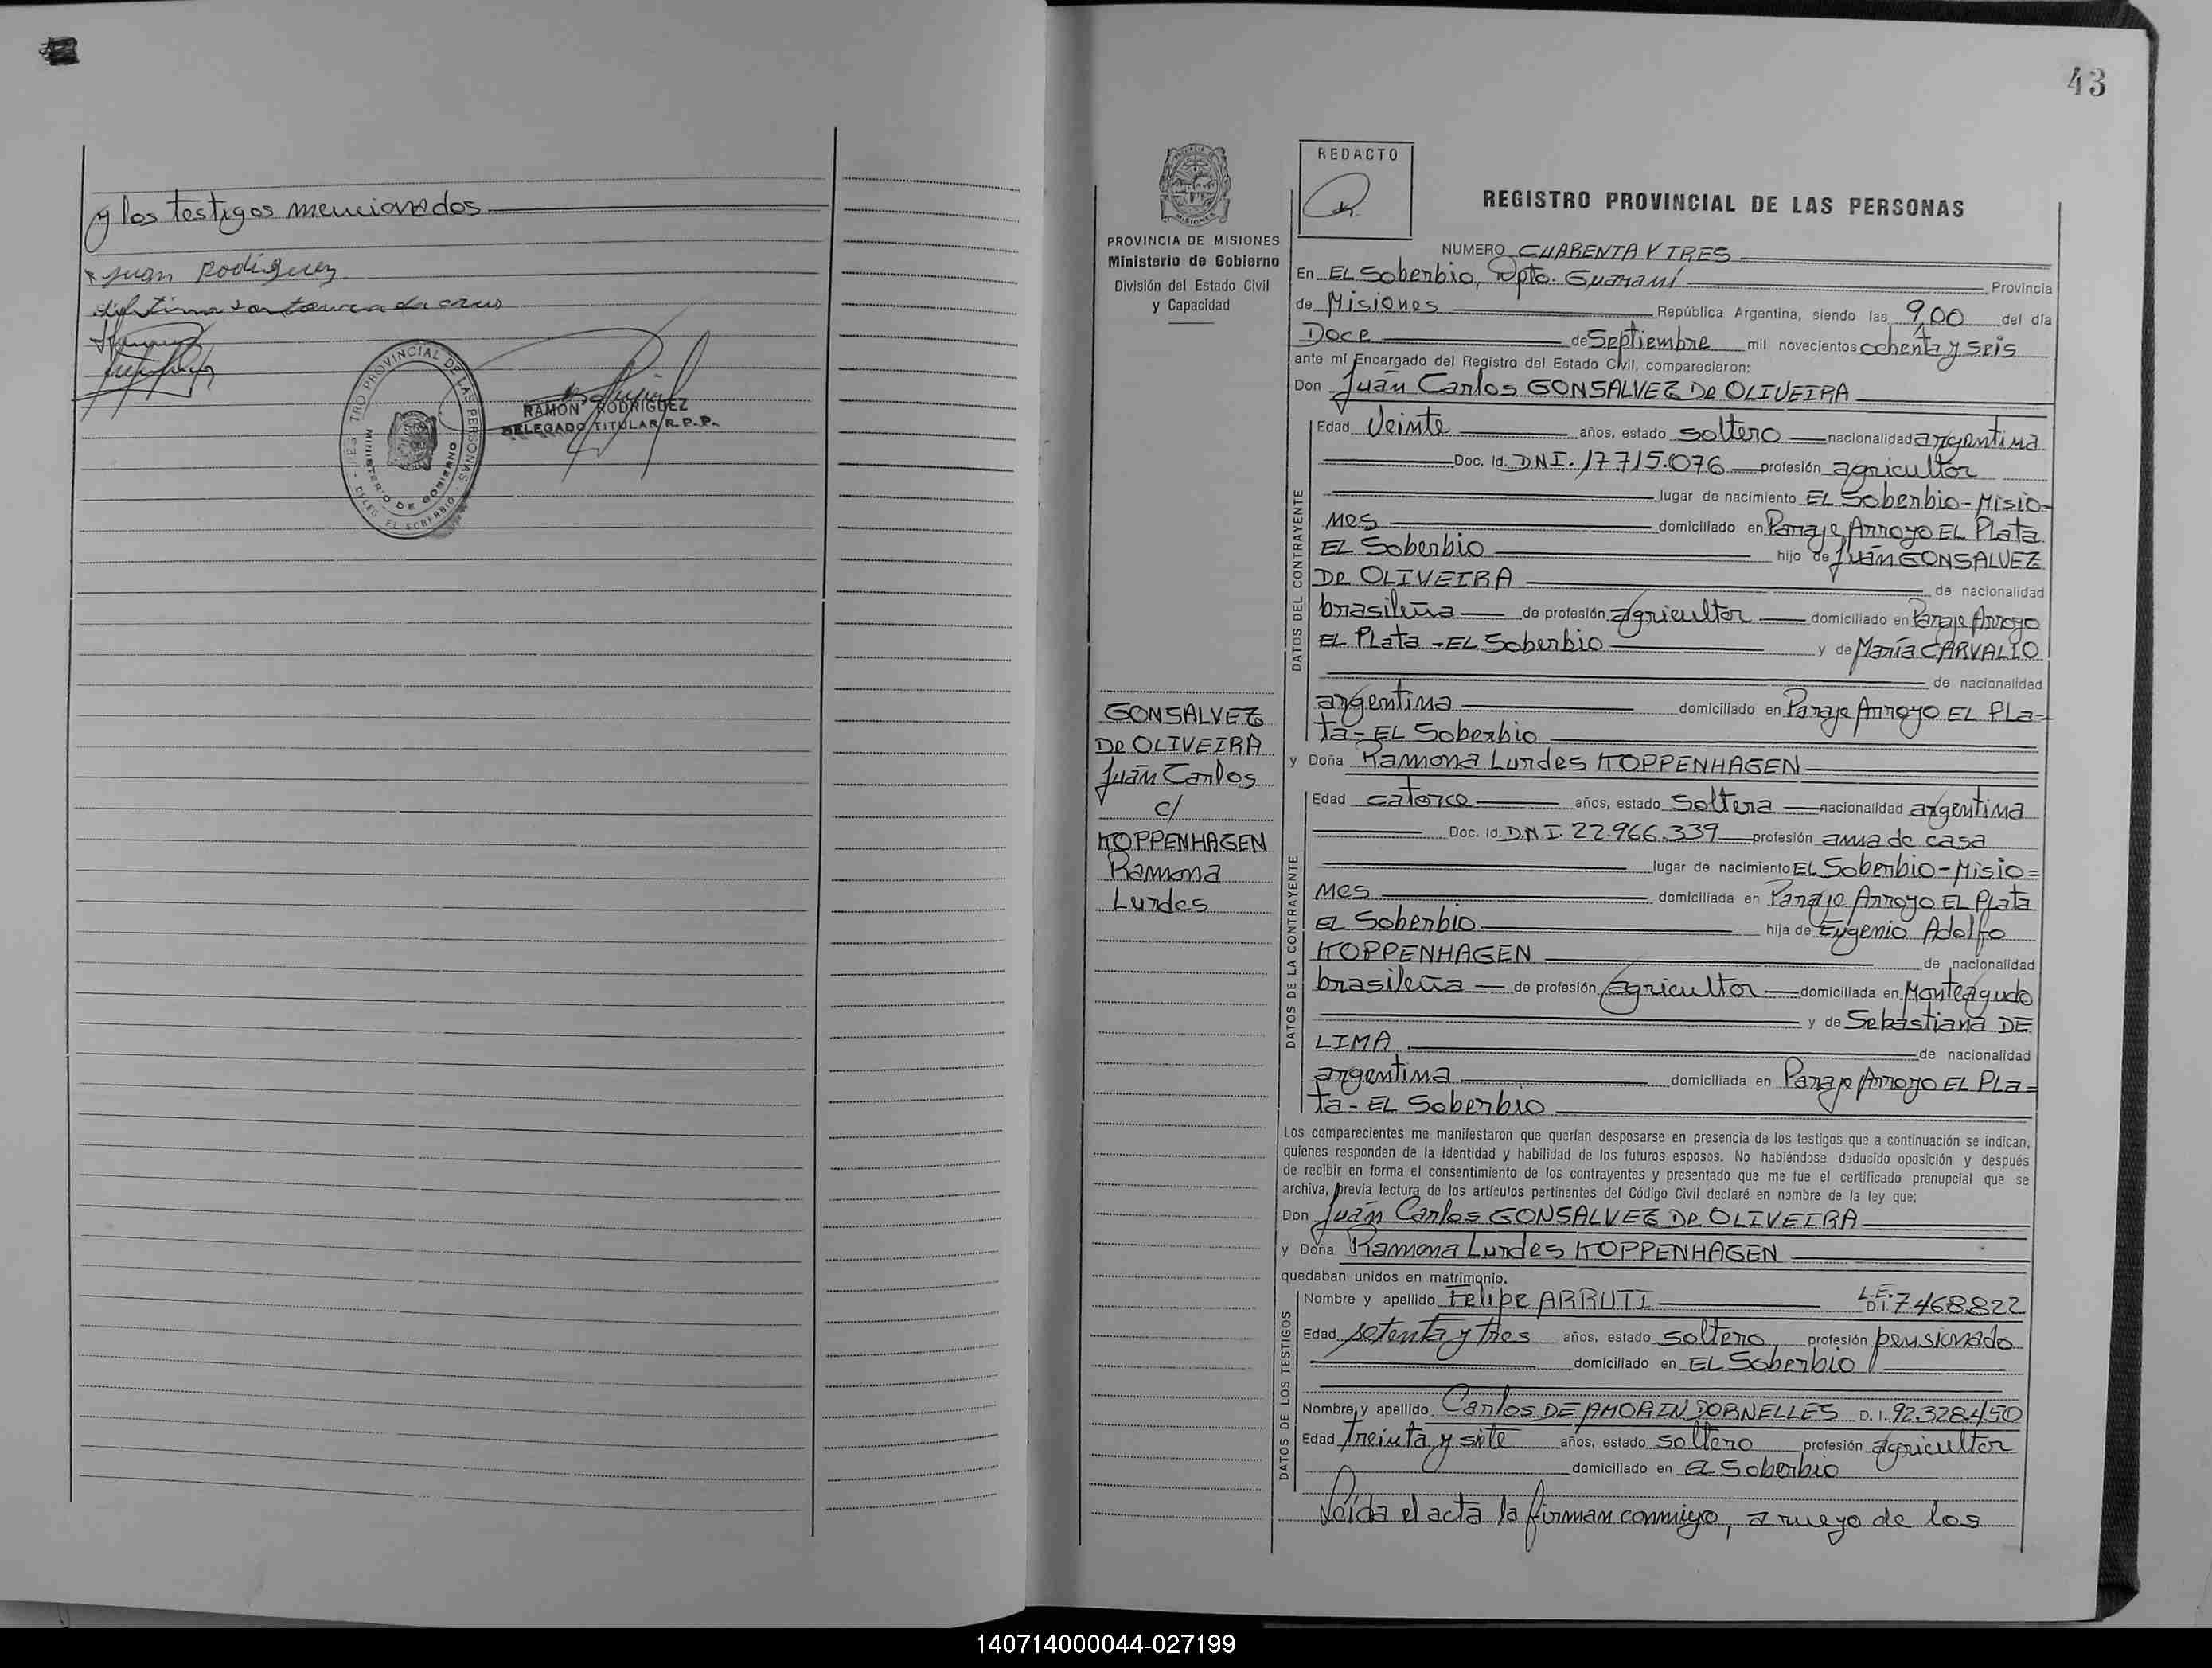 y los testigos mencionados
Juan Rodriguez
REGISTRO PROVINCIAL DE LAS PERSONAS
MINISTERIO DE GOBIERNO
DELEG. EL SOBERBIO
RAMON RODRIGUEZ
DELEGADO TITULAR R.P.P.
43
PROVINCIA DE MISIONES
Ministerio de Gobierno
División del Estado Civil
y Capacidad
GONSALVEZ
De OLIVEIRA
Juán Carlos
c/
KOPPENHAGEN
Ramona
Lurdes
REDACTO
REGISTRO PROVINCIAL DE LAS PERSONAS
NUMERO CUARENTA Y TRES
En EL Soberbio, Dpto. Guaraní Provincia
de Misiones República Argentina, siendo las 9,00 del día
Doce de Septiembre mil novecientos ochenta y seis
ante mí Encargado del Registro del Estado Civil, comparecieron:
Don Juán Carlos GONSALVEZ De OLIVEIRA
DATOS DEL CONTRAYENTE
Edad Veinte años, estado soltero nacionalidad argentina
Doc. Id. DNI. 17715.076 profesión agricultor
lugar de nacimiento EL Soberbio-Misio-
nes domiciliado en Paraje Arroyo EL Plata
EL Soberbio hijo de Juán GONSALVEZ
De OLIVEIRA de nacionalidad
brasileña de profesión agricultor domiciliado en Paraje Arroyo
EL Plata - EL Soberbio y de María CARVALIO
de nacionalidad
argentina domiciliado en Paraje Arroyo EL Pla=
ta - EL Soberbio
y Doña Ramona Lurdes KOPPENHAGEN
DATOS DE LA CONTRAYENTE
Edad catorce años, estado Soltera nacionalidad argentina
Doc. Id. D.N.I. 22.966.339 profesión ama de casa
lugar de nacimiento EL Soberbio-Misio=
nes domiciliada en Paraje Arroyo EL Plata
EL Soberbio hija de Eugenio Adolfo
KOPPENHAGEN de nacionalidad
brasileña de profesión agricultor domiciliada en Monteagudo
y de Sebastiana DE
LIMA de nacionalidad
argentina domiciliada en Paraje Arroyo EL Pla=
ta - EL Soberbio
Los comparecientes me manifestaron que querían desposarse en presencia de los testigos que a continuación se indican,
quienes responden de la identidad y habilidad de los futuros esposos. No habiéndose deducido oposición y después
de recibir en forma el consentimiento de los contrayentes y presentado que me fue el certificado prenupcial que se
archiva, previa lectura de los artículos pertinentes del Código Civil declaré en nombre de la ley que:
Don Juán Carlos GONSALVEZ De OLIVEIRA
y Doña Ramona Lurdes KOPPENHAGEN
quedaban unidos en matrimonio.
DATOS DE LOS TESTIGOS
Nombre y apellido Felipe ARRUTI L.E. D.I. 7468822
Edad setenta y tres años, estado soltero profesión pensionado
domiciliado en EL Soberbio
Nombre y apellido Carlos DE AMORIN DORNELLES D.I. 92.328.450
Edad treinta y siete años, estado soltero profesión agricultor
domiciliado en El Soberbio
Leída el acta la firman conmigo, a ruego de los
140714000044-027199